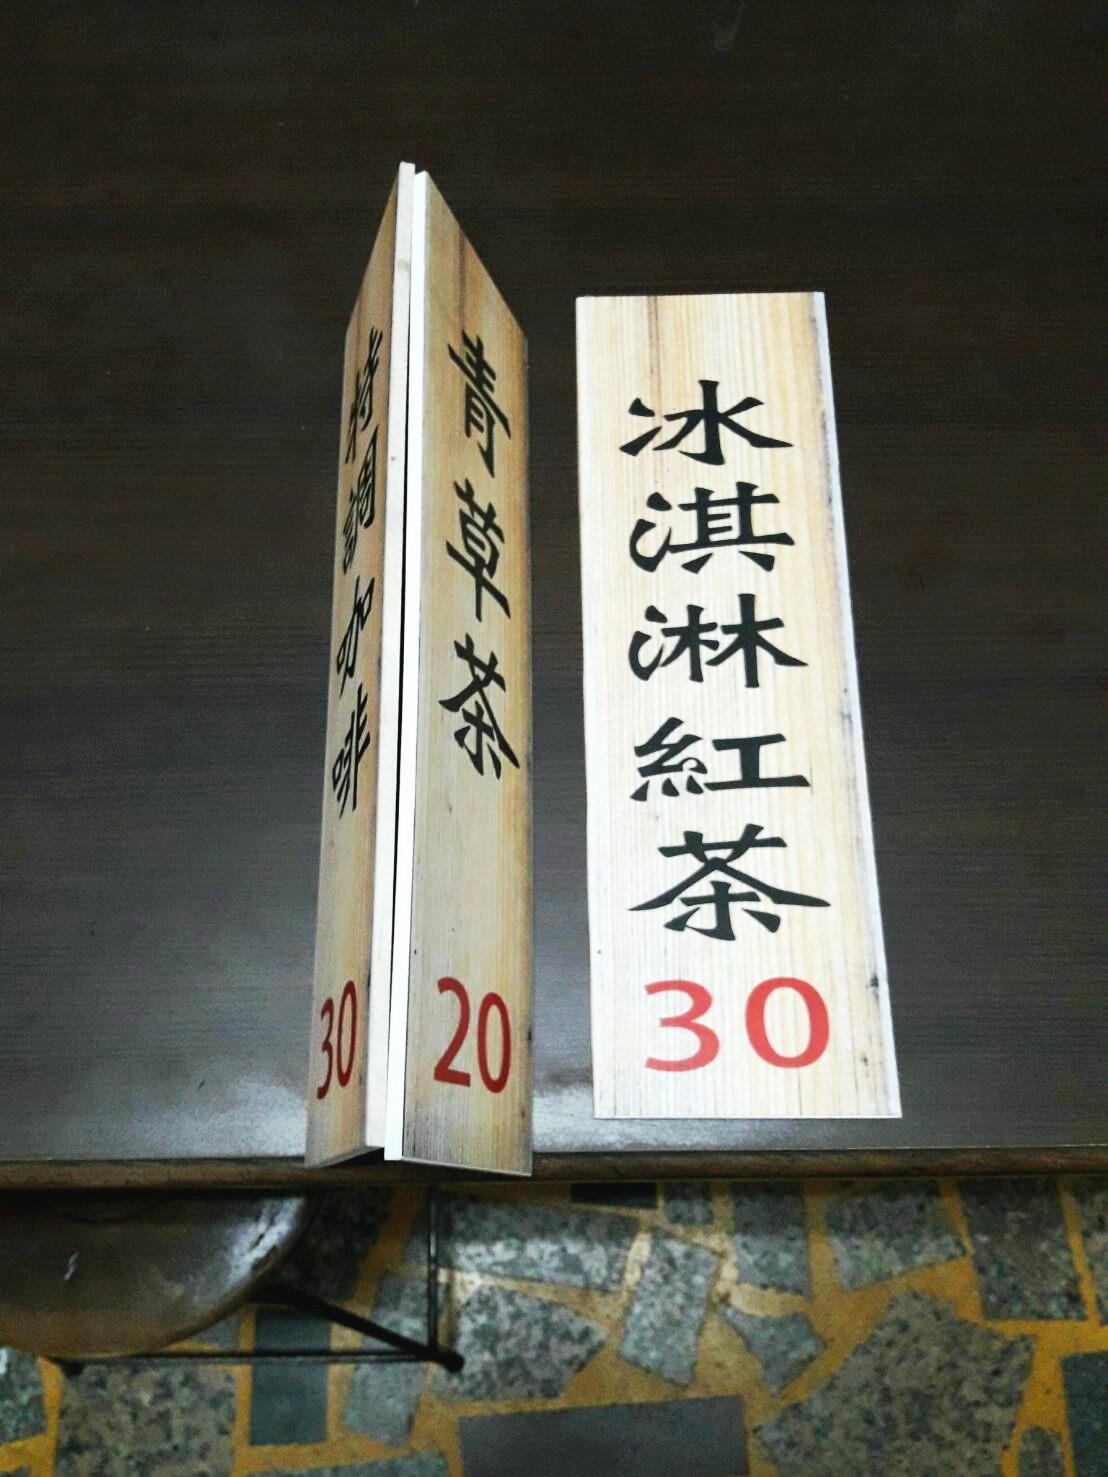 特調咖啡
30
青草茶
20
冰淇淋紅茶
30